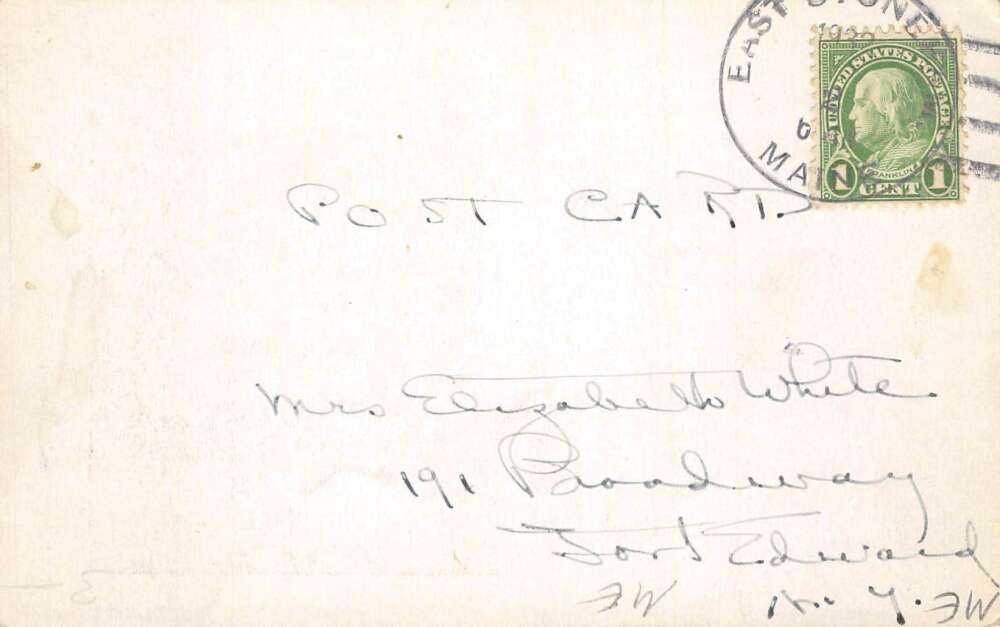 EAST STONE
MAINE
UNITED STATES POSTAGE
FRANKLIN
1 CENT 1
POST CARD
Mrs Elizabeth White
191 Broadway
Fort Edward
N. Y.
ME
ME